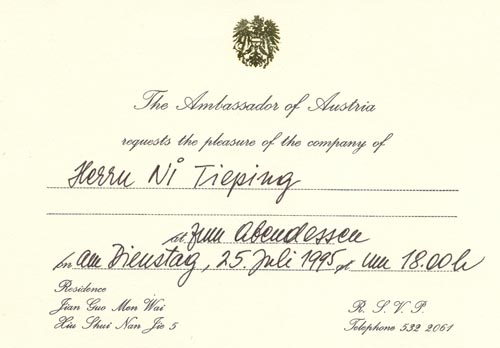 The Ambassador of Austria
requests the pleasure of the company of
Herrn Ni Tieping
at zum Abendessen
on am Dienstag, 25. Juli 1995 at um 18.00 h
Residence
Jian Guo Men Wai
Xiu Shui Nan Jie 5
R. S. V. P.
Telephone 532 2061